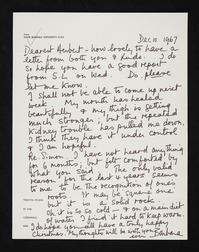 Dec 10 1967
Dearest Herbert - how lovely to have a
letter from both you & Ludo. I do
so hope you have a good report
from S.L on Wed. Do please
let me know.
I shall not be able to come up next
week. My mouth has healed
beautifully & my thigh is getting
much stronger, but the repeated
kidney trouble has pulled me down.
I think they have it under control
& I am hopeful.
Re Simon I have not heard anything
for 6 months, but felt comforted by
what you said. The only valid
reason for the last 4 years seems
to me to be the recognition of ones
roots. It may be square one
but it is a solid rock
Oh it is so so cold - & a main diet
of water I find it hard to keep warm.
I do hope you all have a lovely happy
Christmas. My thoughts will be with you
Barbara